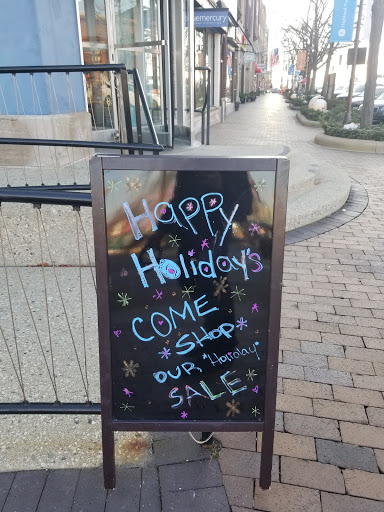 mercury
Happy
Holiday's
COME
SHOP
OUR "Holiday"
SALE